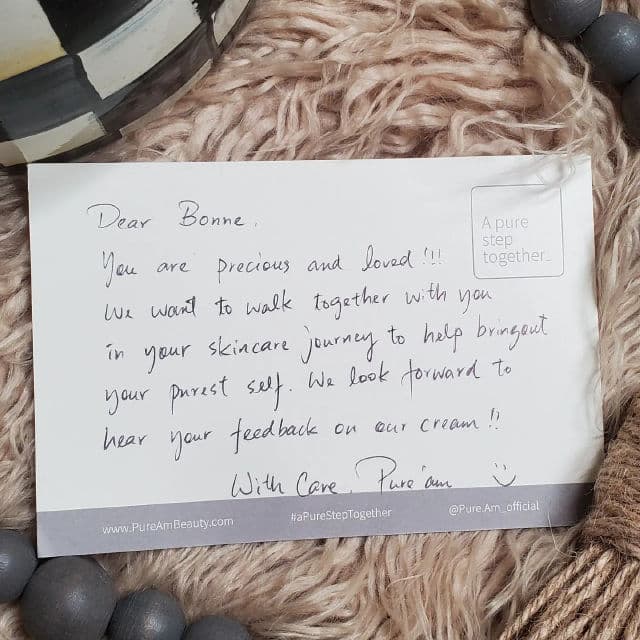 A pure
step
together.
Dear Bonne,
You are precious and loved !!!
We want to walk together with you
in your skincare journey to help bringout
your purest self. We look forward to
hear your feedback on our cream !!
With Care, Pure'am :)
www.PureAmBeauty.com #aPureStepTogether @Pure.Am_official